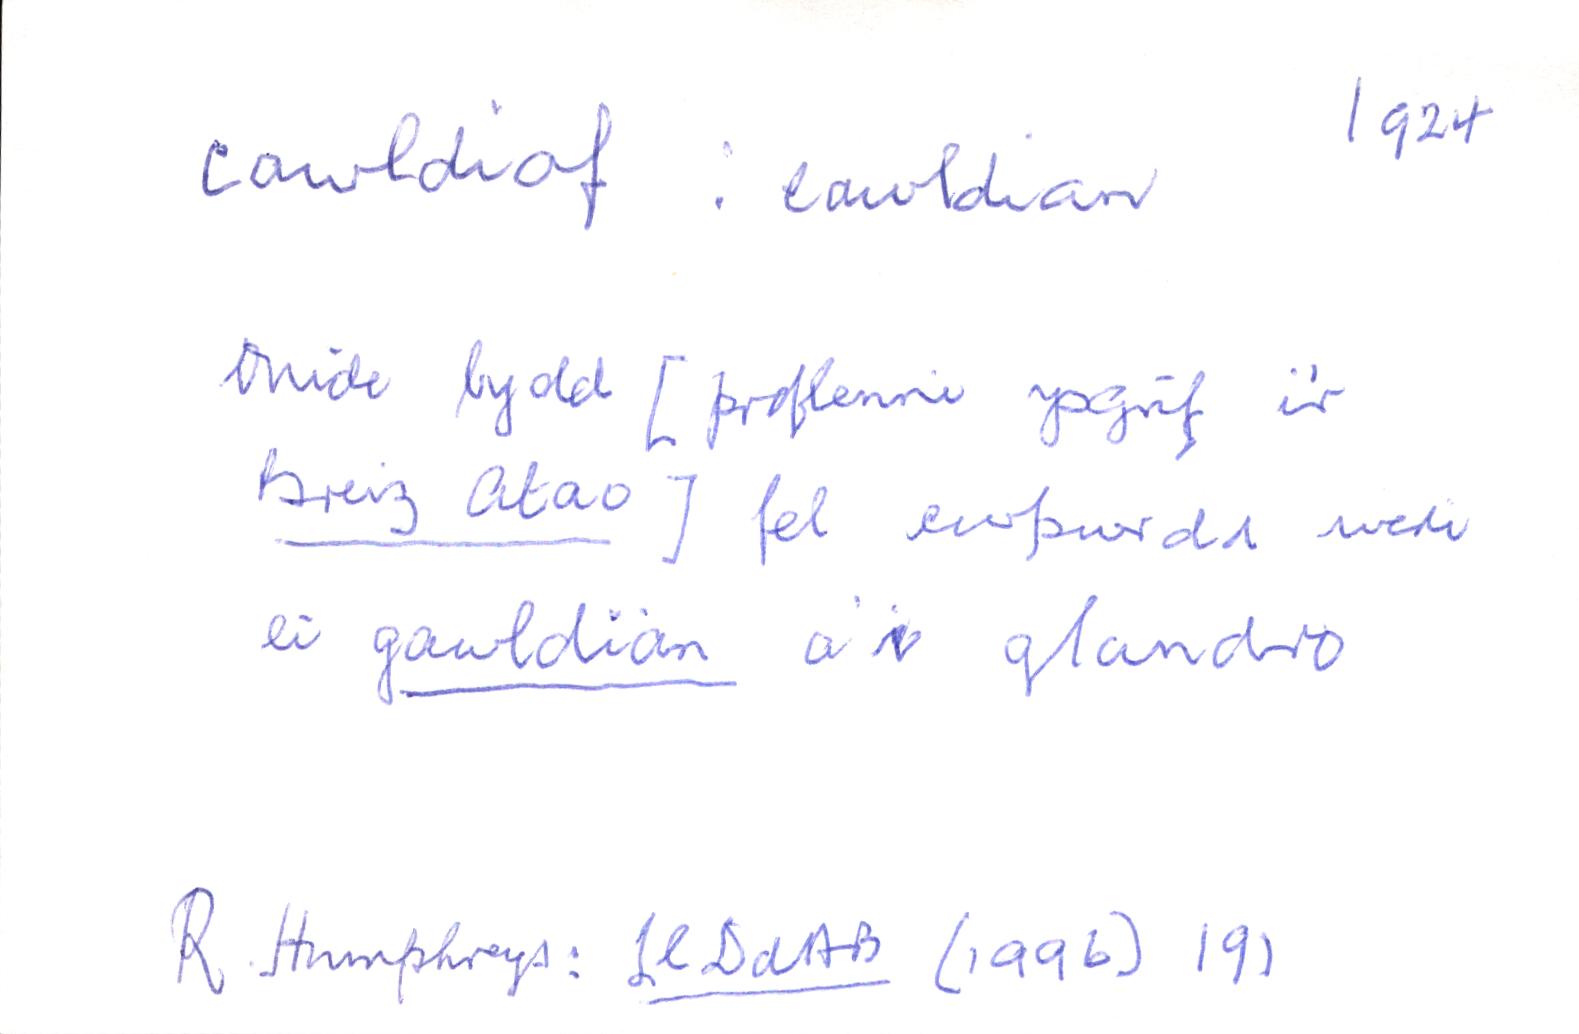 1924
cawldiaf : cawldian
onide bydd [ proflenni ysgrif i'r
Breiz Atao ] fel cwpwrdd wedi
ei gawldian a'i glandro
R Humphreys: Ll DdAB (1996) 191